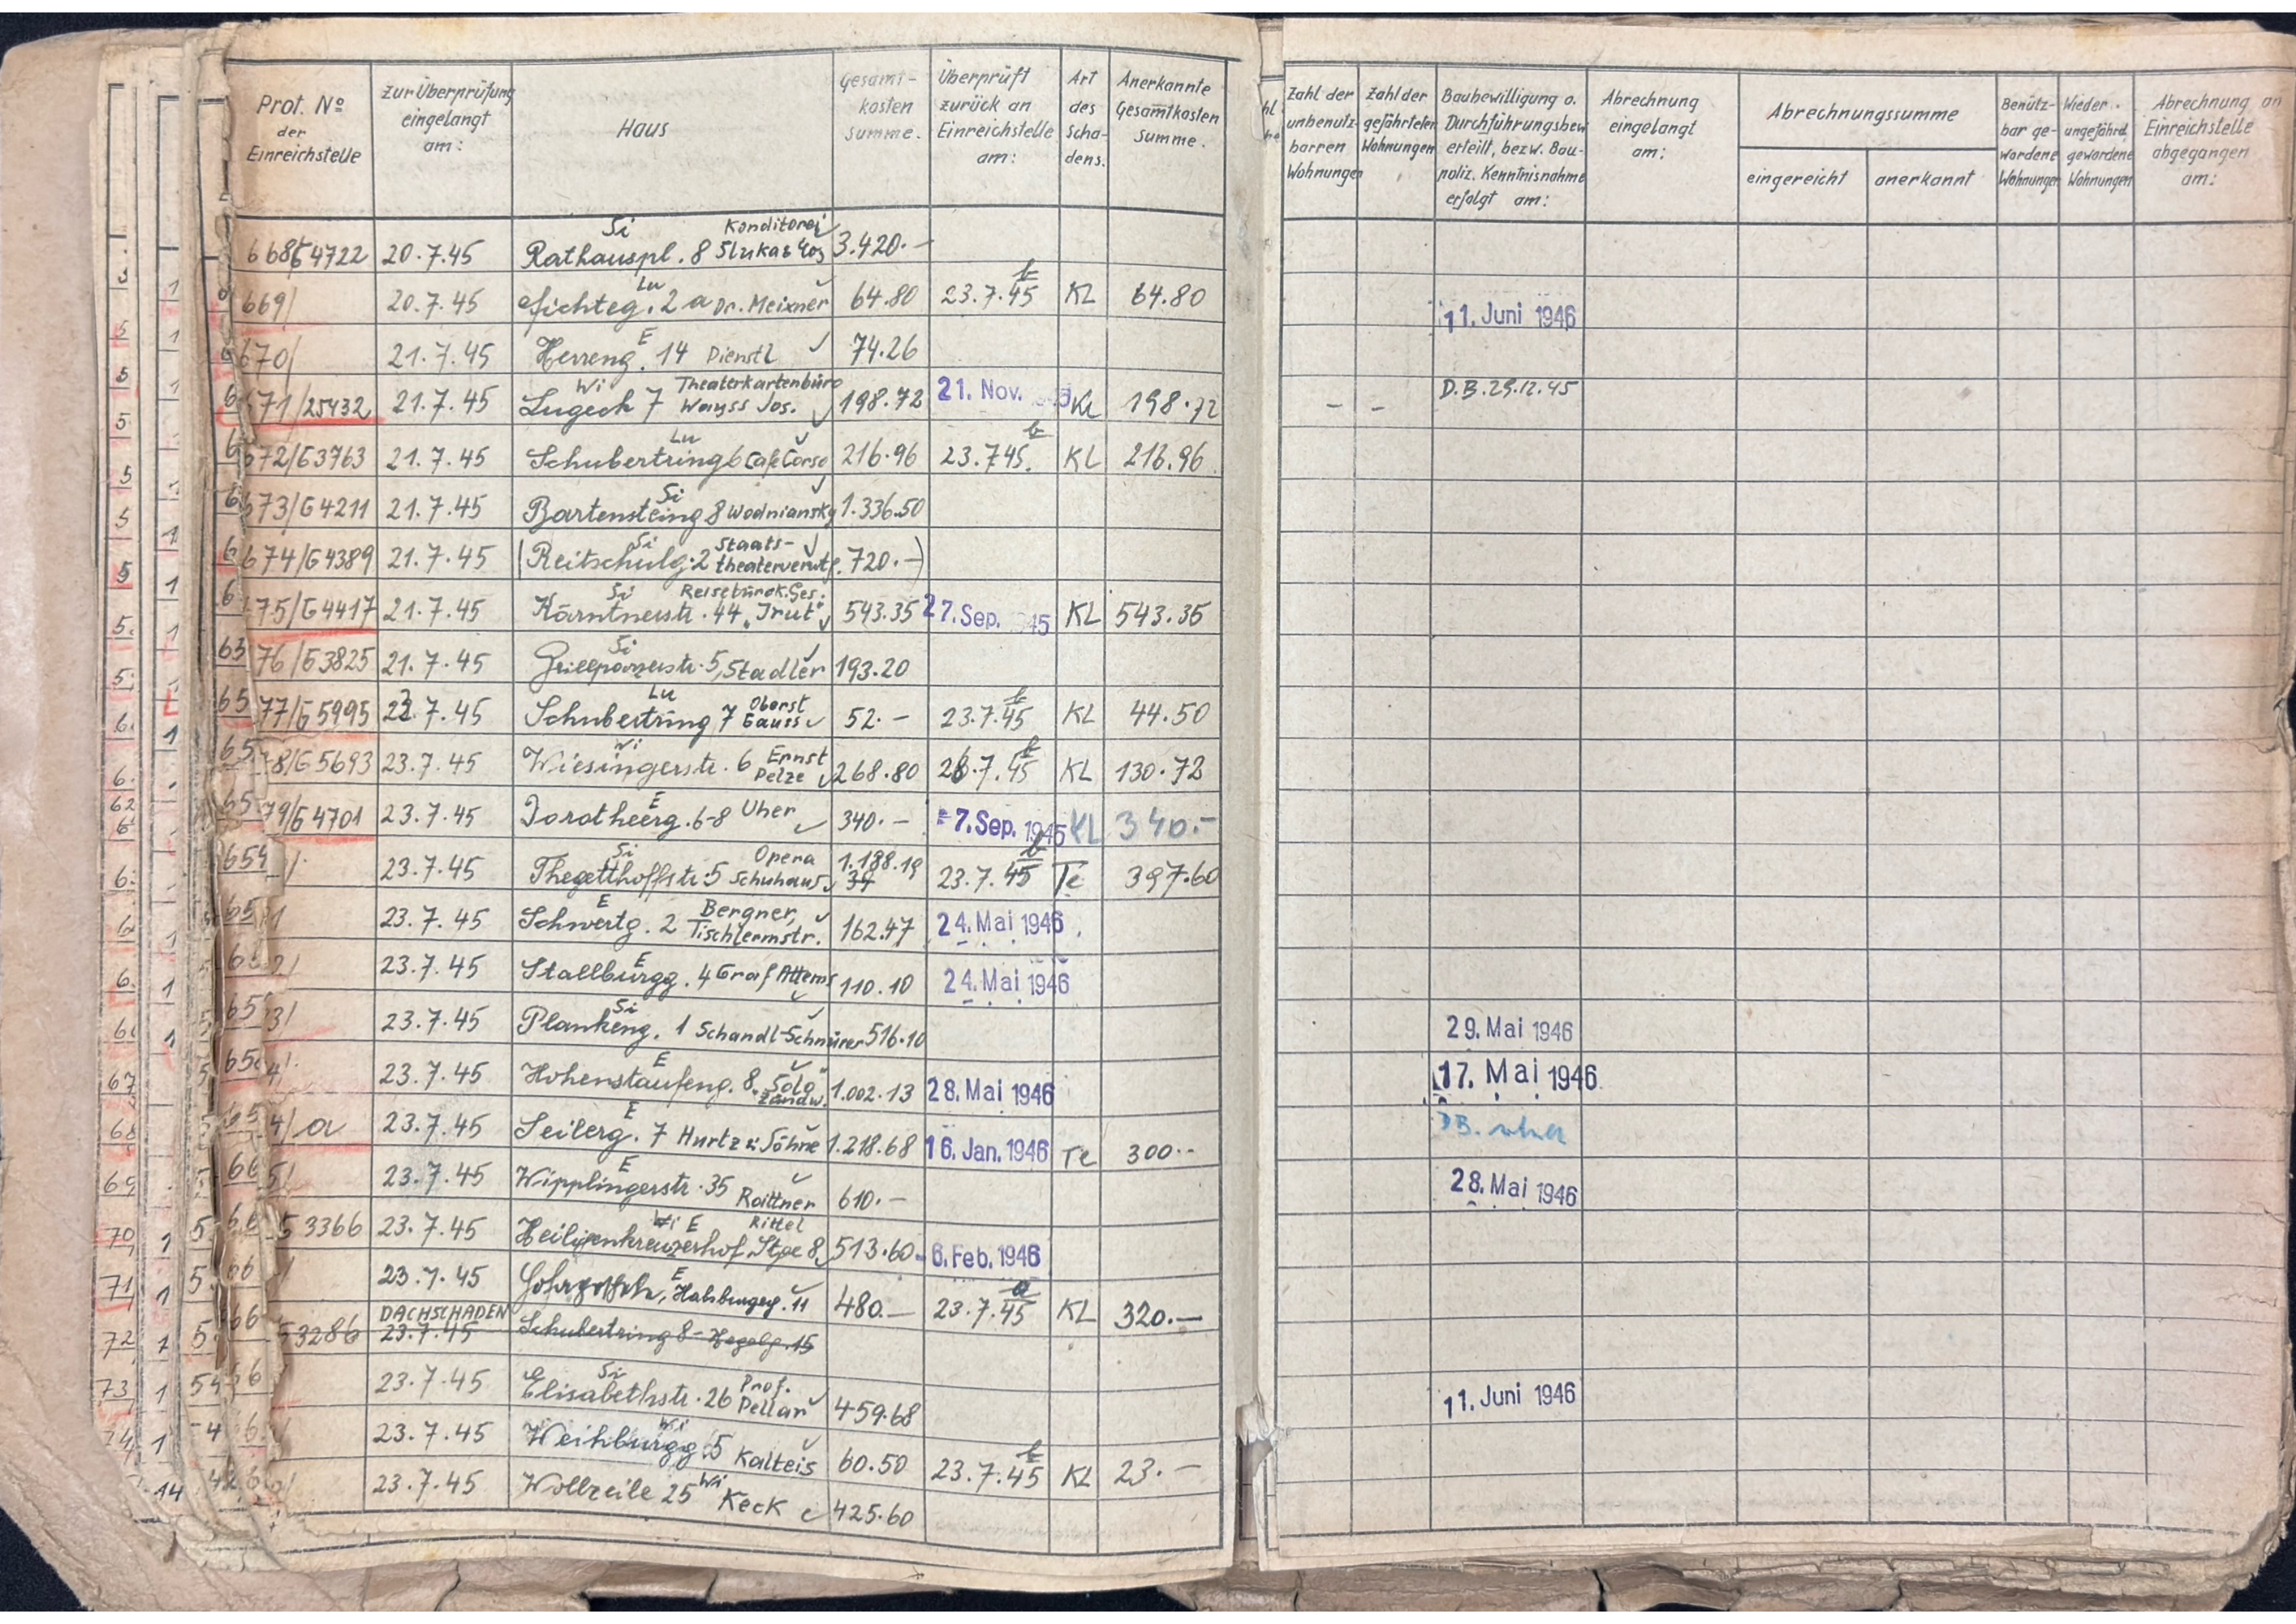 Prot. No der Einreichstelle | Zur Überprüfung eingelangt am: | Haus | Gesamt-kosten summe. | Überprüft zurück an Einreichstelle am: | Art des Scha-dens. | Anerkannte Gesamtkosten summe. | Zahl der unbenutz-barren Wohnungen | Zahl der gefährteten Wohnungen | Baubewilligung o. Durchführungsbew erteilt, bezw. Bau-poliz. Kenntnisnahme erfolgt am: | Abrechnung eingelangt am: | Abrechnungssumme eingereicht | anerkannt | Benütz-bar ge-wordene Wohnungen | Wieder. ungefährd. gewordene Wohnungen | Abrechnung an Einreichstelle abgegangen am:
4722 20.7.45 Si Rathauspl. 8 Konditorei 3.420.-
669/ 20.7.45 Lu Fichteg. 2a Dr. Meixner 64.80 23.7.45 KL 64.80 11. Juni 1946
670/ 21.7.45 E Herreng. 14 Dienstl 74.26
671/25432 21.7.45 Wi Lugeck 7 Theaterkartenbüro Wayss Jos. 198.72 21. Nov. KL 198.72 - - D.B. 29.12.45
672/G3763 21.7.45 Lu Schubertring 6 Cafe Corso 216.96 23.7.45. KL 216.96
673/G4211 21.7.45 Si Bartensteing 8 Wodniansky 1.336.50
674/G4389 21.7.45 (Si Reitschulg. 2 Staats-theaterverwtg. 720.-)
75/G4417 21.7.45 Si Kärntnerstr. 44 Reisebürok. Ges. 543.35 27. Sep. 1945 KL 543.35
76/G3825 21.7.45 Si Grillparzerstr. 5, Stadler 193.20
77/G5995 23.7.45 Lu Schubertring 7 Oberst Gauss 52.- 23.7.45 KL 44.50
78/G5693 23.7.45 Wi Wiesingerstr. 6 Ernst Pelze 268.80 26.7.45 KL 130.72
79/G4701 23.7.45 E Dorotheerg. 6-8 Uher 340.- -7. Sep. 1945 KL 340.-
23.7.45 Si Thegetthoffstr. 5 Opera Schuhaus 1.188.19 23.7.45 Te 397.60
23.7.45 E Schwertg. 2 Bergner, Tischlermstr. 162.47 24. Mai 1946
23.7.45 E Stallburgg. 4 Graf Attems 110.10 24. Mai 1946
23.7.45 Si Plankeng. 1 Schandl-Schnürer 516.10 29. Mai 1946
23.7.45 E Hohenstaufeng. 8 "Solo" Zündw. 1.002.13 28. Mai 1946 17. Mai 1946
4/a 23.7.45 E Seilerg. 7 Hurtz u. Söhne 1.218.68 16. Jan. 1946 Te 300.- DB.
23.7.45 E Wipplingerstr. 35 Raittner 610.- 28. Mai 1946
3366 23.7.45 Wi E Heiligenkreuzerhof Stge 8 Rittel 513.60 - 6. Feb. 1946
23.7.45 E Habsburgerg. 11 480.- 23.7.45 KL 320.-
3286 DACHSCHADEN 23.7.45 Schubertring 8 - Hegelg. 15
23.7.45 Si Elisabethstr. 26 Prof. 459.68 11. Juni 1946
23.7.45 Wi Weihburgg. 5 Kalteis 60.50 23.7.45 KL 23.-
23.7.45 Wollzeile 25 Wi Keck 425.60